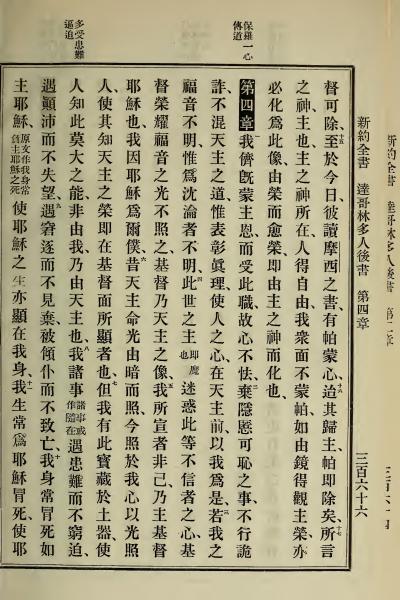 新約全書 達哥林多人後書 第四章 三百六十六
保羅一心傳道
多受患難逼迫
督可除、十五至於今日彼讀摩西之書、有帕蒙心、十六迨其歸主、帕即除矣、十七所言
之神主也、主之神所在、人得自由、我衆面不蒙帕、如由鏡得觀主榮、亦
必化爲此像、由榮而愈榮、即由主之神而化也、
第四章 一我儕旣蒙主恩而受此職、故心不怯、二棄隱慝可恥之事、不行詭
詐、不混天主之道、惟表彰眞理、使人之心、在天主前以我爲是、三若我之
福音不明、惟爲沈淪者不明、四此世之主即魔也迷惑此等不信者之心、基
督榮耀福音之光不照之、基督乃天主之像、五我所宣者非己、乃主基督
耶穌也、我因耶穌爲爾僕、六昔天主命光由暗而照、今照於我心、以光照
人、使其知天主之榮、即在基督面所顯者也、七但我有此寶藏於土器、使
人知此莫大之能、非由我、乃由天主也、八我諸事諸事或作隨在遇患難而不窮迫、
遇顚沛而不失望、九遇窘逐而不見棄、被傾仆而不致亡、十我身常冒死如
主耶穌、原文作我身常負主耶穌之死使耶穌之生、亦顯在我身、十一我生常爲耶穌冒死、使耶